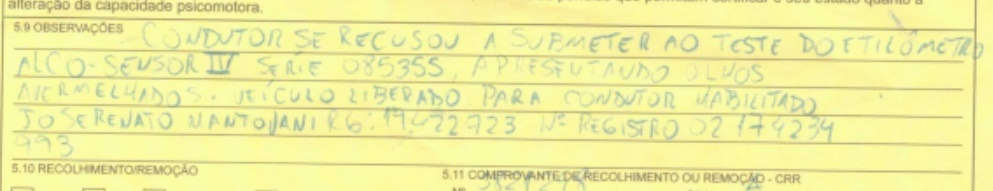 alteração da capacidade psicomotora.
5.9 OBSERVAÇÕES CONDUTOR SE RECUSOU A SUBMETER AO TESTE DO ETILÔMETRO
ALCO-SENSOR IV SÉRIE 085355, APRESENTANDO OLHOS
AVERMELHADOS. VEÍCULO LIBERADO PARA CONDUTOR HABILITADO
JOSE RENATO RG: 19422723 Nº REGISTRO 02174234
993
5.10 RECOLHIMENTO/REMOÇÃO 5.11 COMPROVANTE DE RECOLHIMENTO OU REMOÇÃO - CRR
Nº